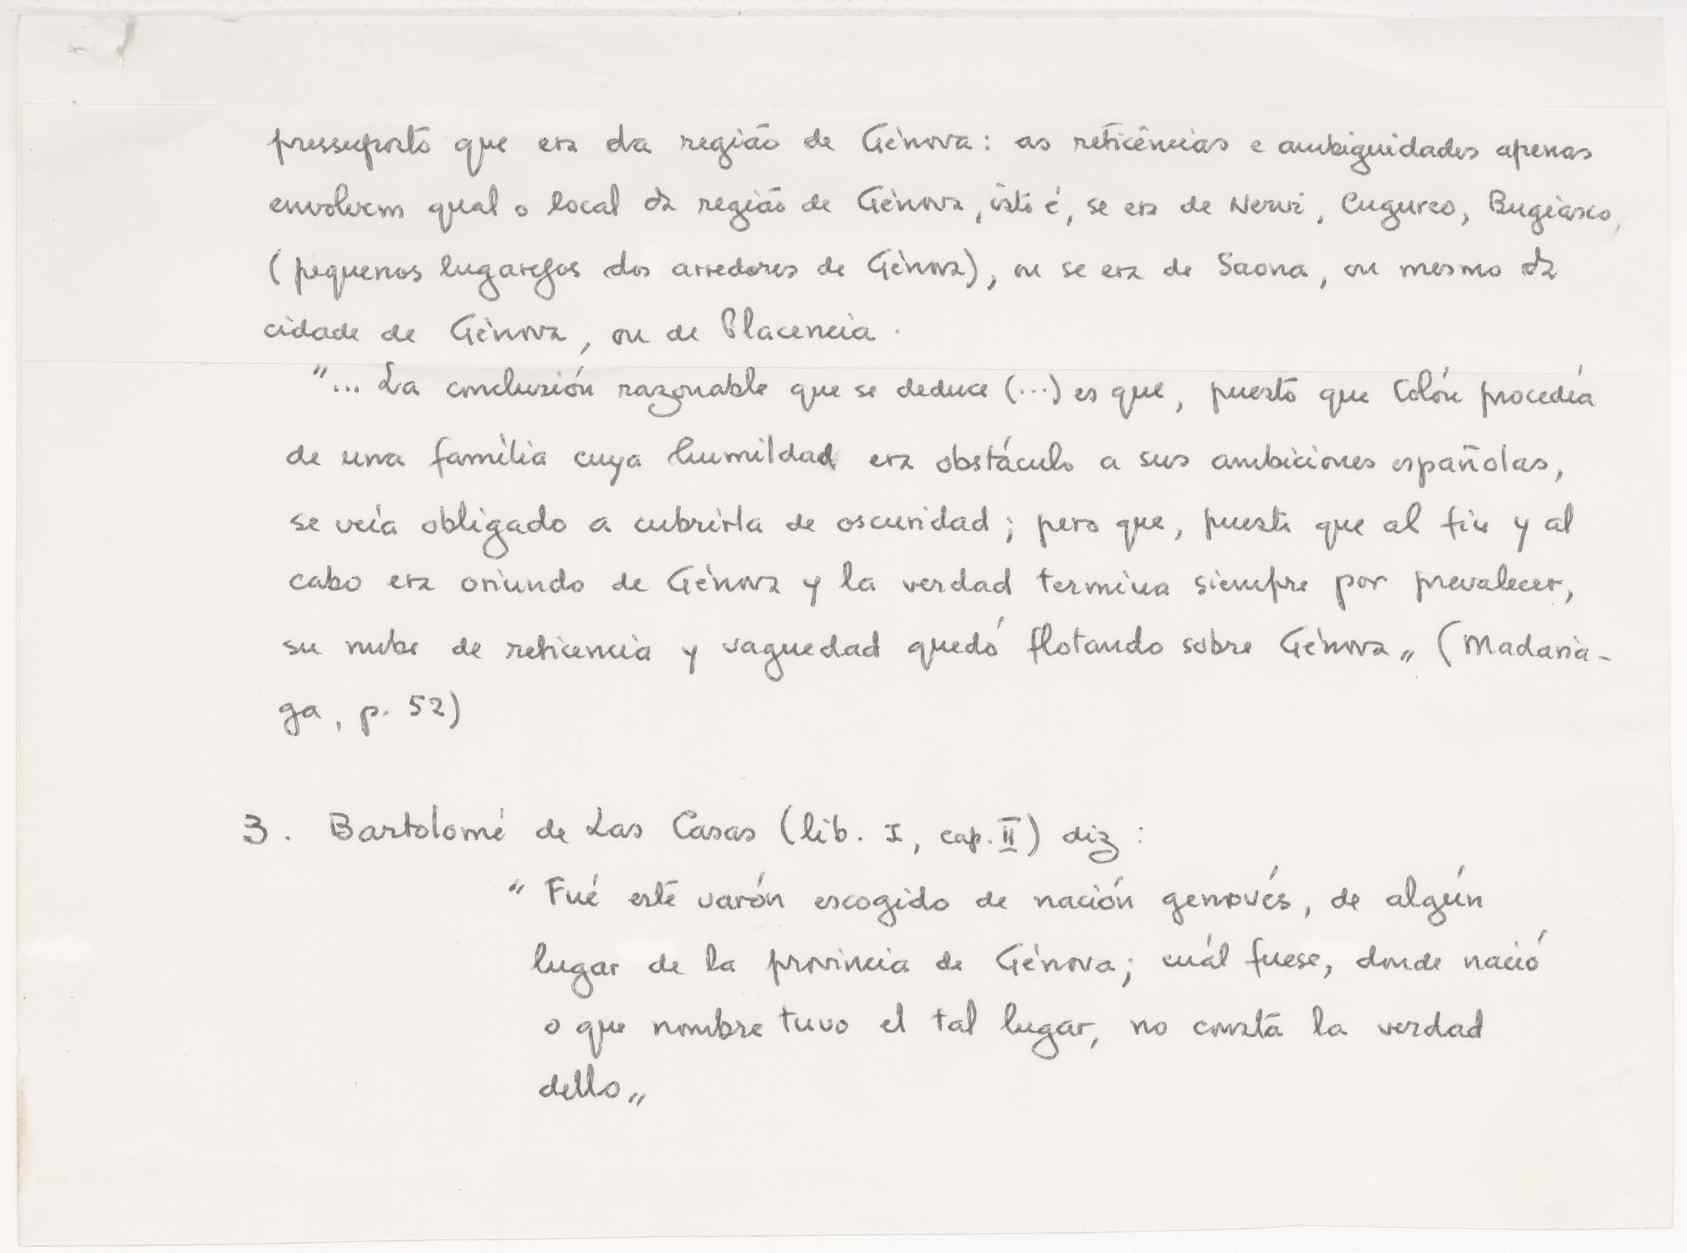 pressuposto que era da região de Génova: as reticências e ambiguidades apenas
envolvem qual o local da região de Génova, isto é, se era de Nervi, Cugureo, Bugiasco,
(pequenos lugarejos dos arredores de Génova), ou se era de Saona, ou mesmo da
cidade de Génova, ou de Placencia.
"... La conclusión razonable que se deduce (...) es que, puesto que Colón procedía
de una família cuya humildad era obstáculo a sus ambiciones españolas,
se veía obligado a cubrirla de oscuridad; pero que, puesto que al fin y al
cabo era oriundo de Génova y la verdad termina siempre por prevalecer,
su nube de reticencia y vaguedad quedó flotando sobre Génova" (Madaria-
ga, p. 52)
3. Bartolomé de Las Casas (lib. I, cap. II) diz:
"Fué este varón escogido de nación genovés, de algún
lugar de la provincia de Génova; cuál fuese, donde nació
o que nombre tuvo el tal lugar, no consta la verdad
dello"